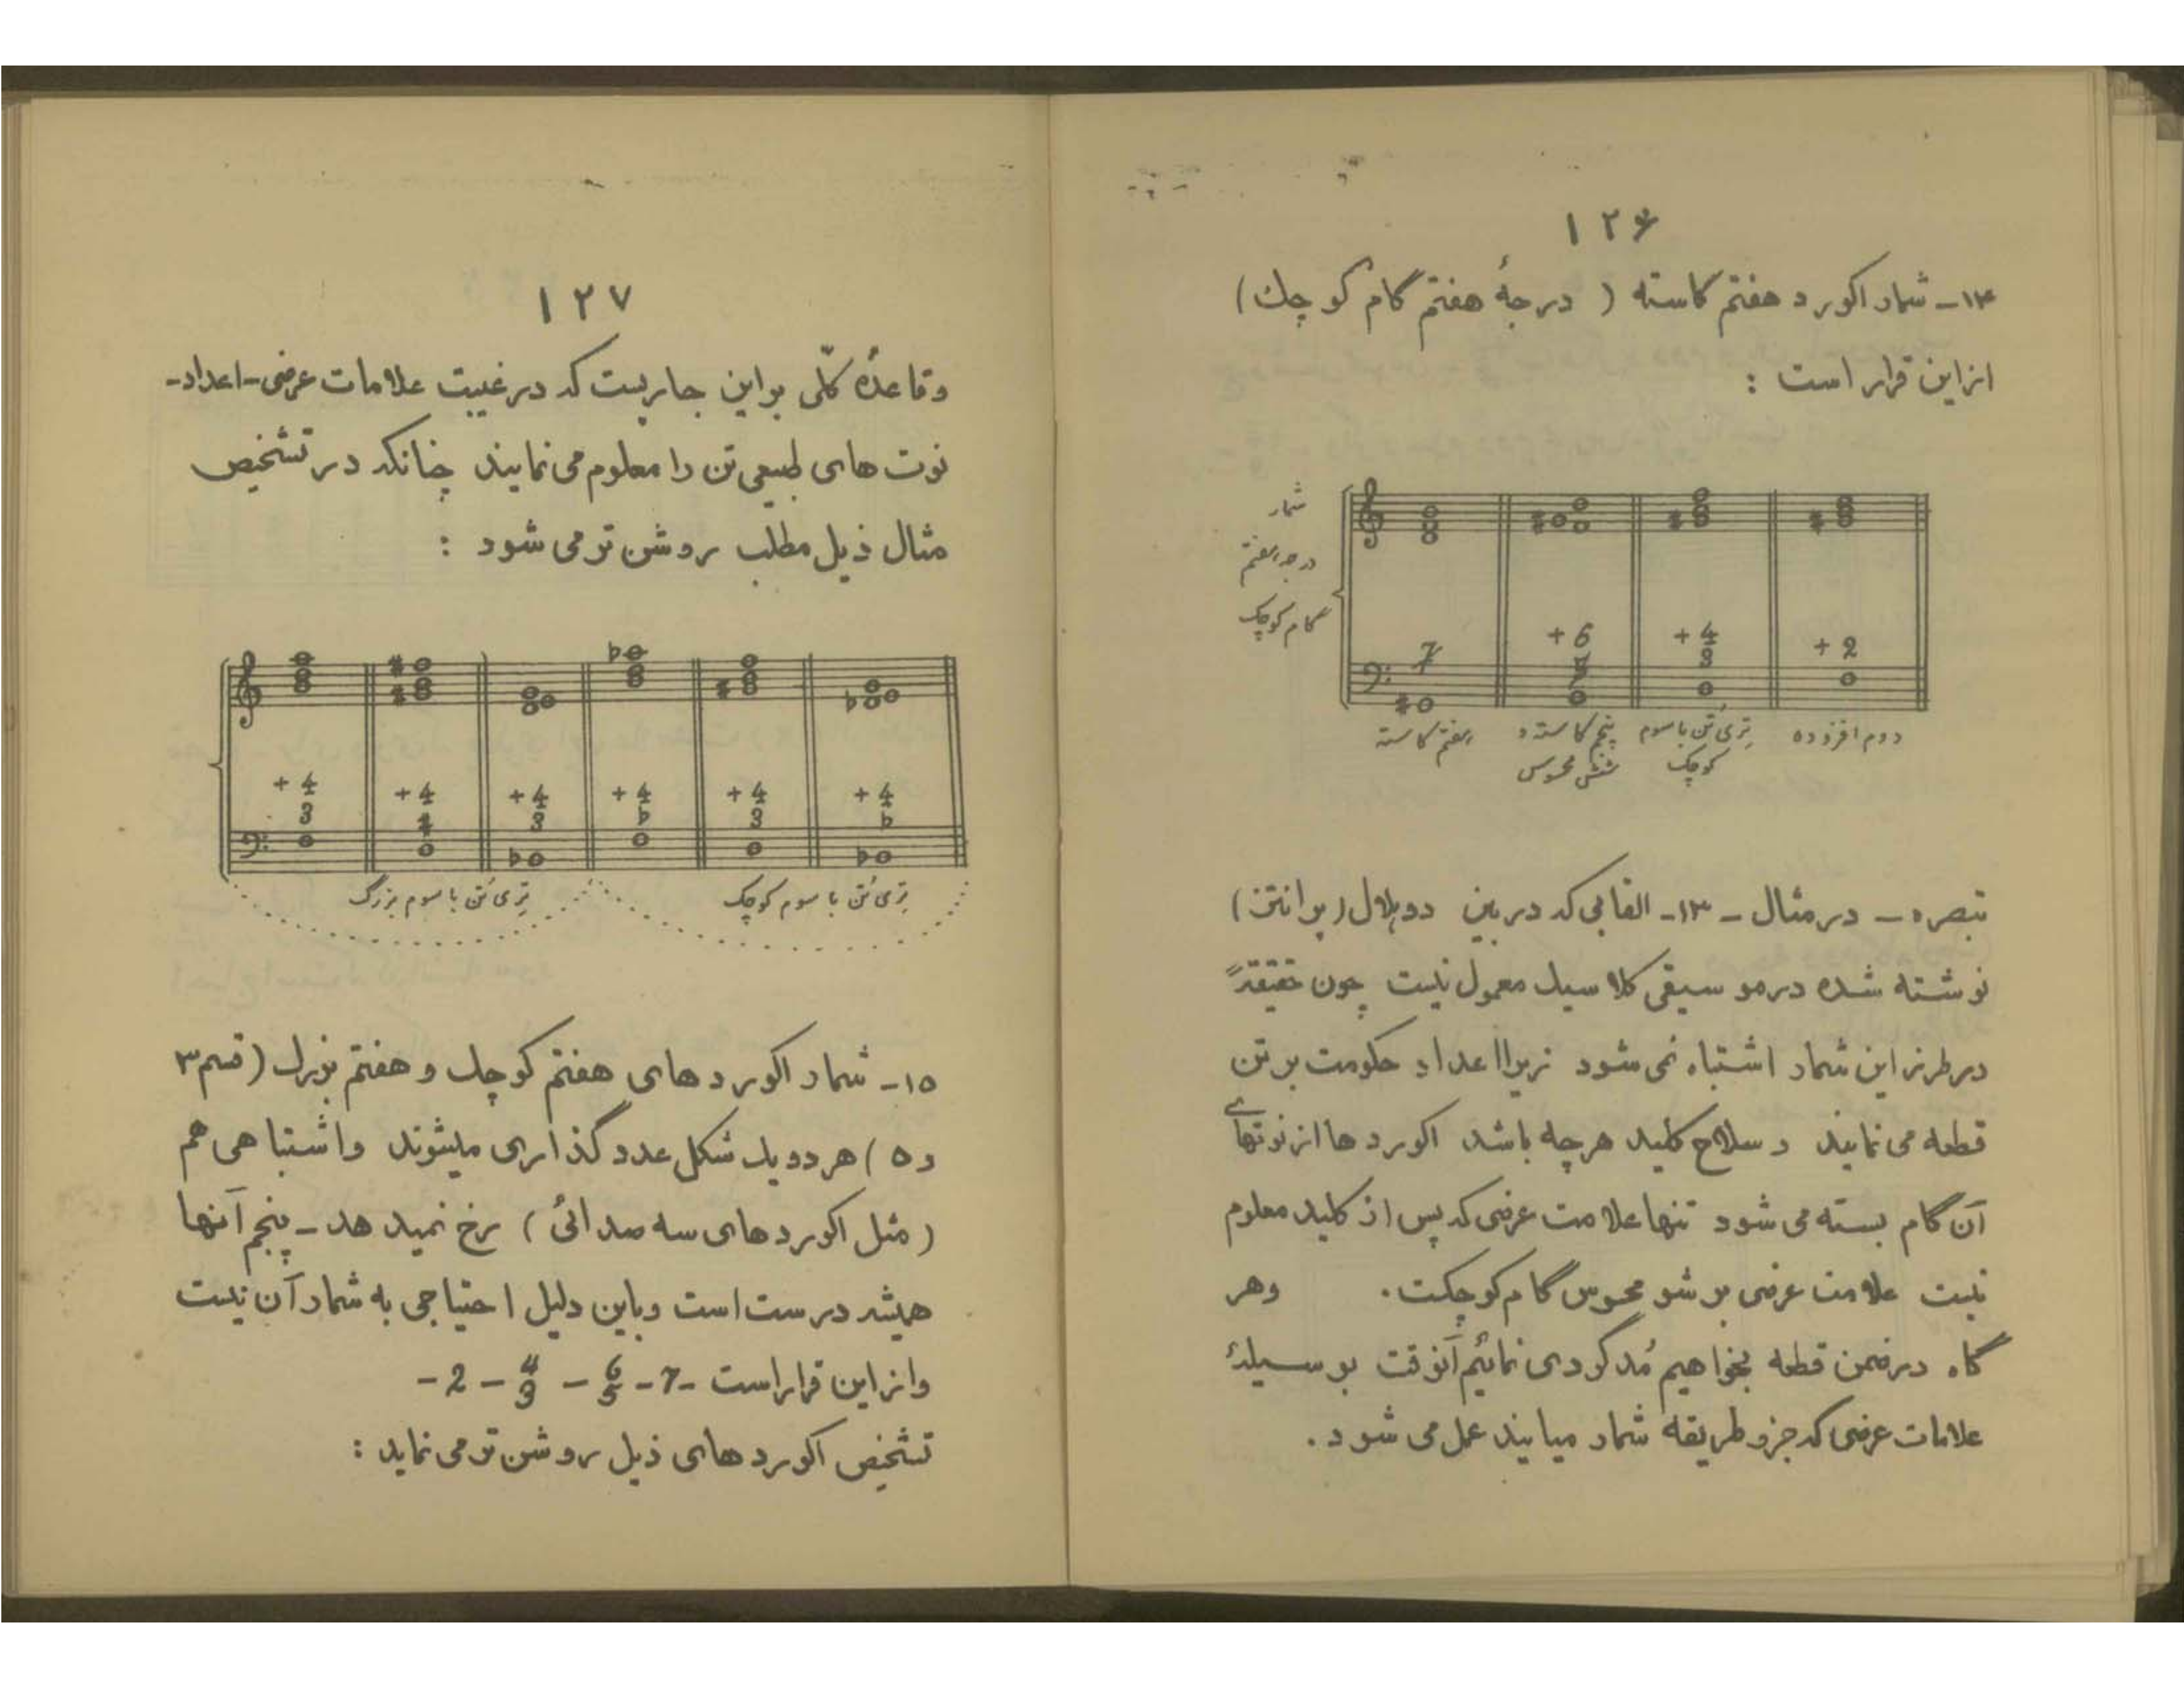 ۱۲۶
۱۴ـ شمار اکورد هفتم کاسته ( درجهٔ هفتم گام کوچك )
ازاین قرار است :
شمار
درجه هفتم
گام کوچک
7
+ 6
5
+ 4
3
+ 2
هفتم کاسته
پنجم کاسته و
ششم محسوس
تری تُن با سوم
کوچک
دوم افزوده
تبصره ـ در مثال ـ ۱۳ـ القابی که در بین دو هلال (پرانتز)
نوشته شده در موسیقی کلاسیك معمول نیست چون حقیقةً
در طرز این شمار اشتباه نمی شود زیرا اعداد حکومت بر تن
قطعه می نمایند و سلاح کلید هرچه باشد اکوردها از نوتهای
آن گام بسته می شود تنها علامت عرضی که پس از کلید معلوم
نیست علامت عرضی بر شو محسوس گام کوچکست . وهر
گاه در ضمن قطعه بخواهیم مُدگردی نمائیم آنوقت بوسیلهٔ
علامات عرضی که جزو طریقه شمار میایند عمل می شود .
۱۲۷
وقاعدهٔ کلّی براین جاریست که در غیبت علامات عرضی ـ اعداد ـ
نوت های طبیعی تن را معلوم می نمایند چنانکه در تشخیص
مثال ذیل مطلب روشن تر می شود :
+ 4
3
+ 4
♯
+ 4
3
+ 4
♭
+ 4
3
+ 4
♭
تری تُن با سوم بزرگ
تری تُن با سوم کوچک
۱۵ـ شمار اکورد های هفتم کوچك و هفتم بزرك (قسم ۳
و ۵ ) هر دو یك شکل عدد گذاری میشوند واشتباهی هم
( مثل اکوردهای سه صدائی ) رخ نمید هد ـ پنجم آنها
همیشه درست است وباین دلیل احتیاجی به شمار آن نیست
وازاین قراراست -7- 6 5 - 4 3 - 2 -
تشخیص اکورد های ذیل روشن تر می نماید :